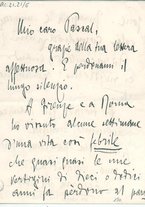 Mio caro Pascal,
grazie della tua lettera
affettuosa. E perdonami il
lungo silenzio.
A Firenze e a Roma
ho vissuto alcune settimane
d'una vita così febrile
che quasi quasi le mie
di dieci o dodici
anni fa perdono al